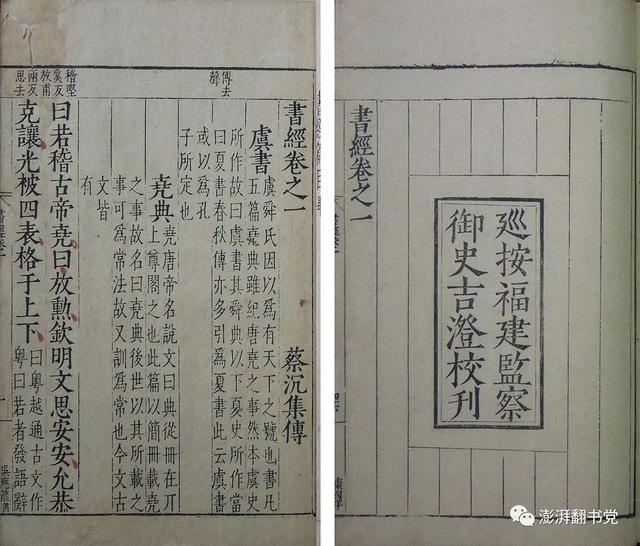 傳去
聲
書經卷之一
蔡沉集傳
虞書
虞舜氏因以爲有天下之號也書凡
五篇堯典雖紀唐堯之事然本虞史
所作故曰虞書其舜典以下夏史所作當
曰夏書春秋傳亦多引爲夏書此云虞書
或以爲孔
子所定也
堯典
堯唐帝名説文曰典從冊在丌
上尊閣之也此篇以簡冊載堯
之事故名曰堯典後世以其所載之
事可爲常法故又訓爲常也今文古
文皆
有
稽堅
奚反
放甫
兩反
思去
曰若稽古帝堯曰放勲欽明文思安安允恭
克讓光被四表格于上下
曰粤越通古文作
粤曰若者發語辭
書經卷一
一
廵按福建監察
御史吉澄校刊
書經卷之一
澎湃翻书党